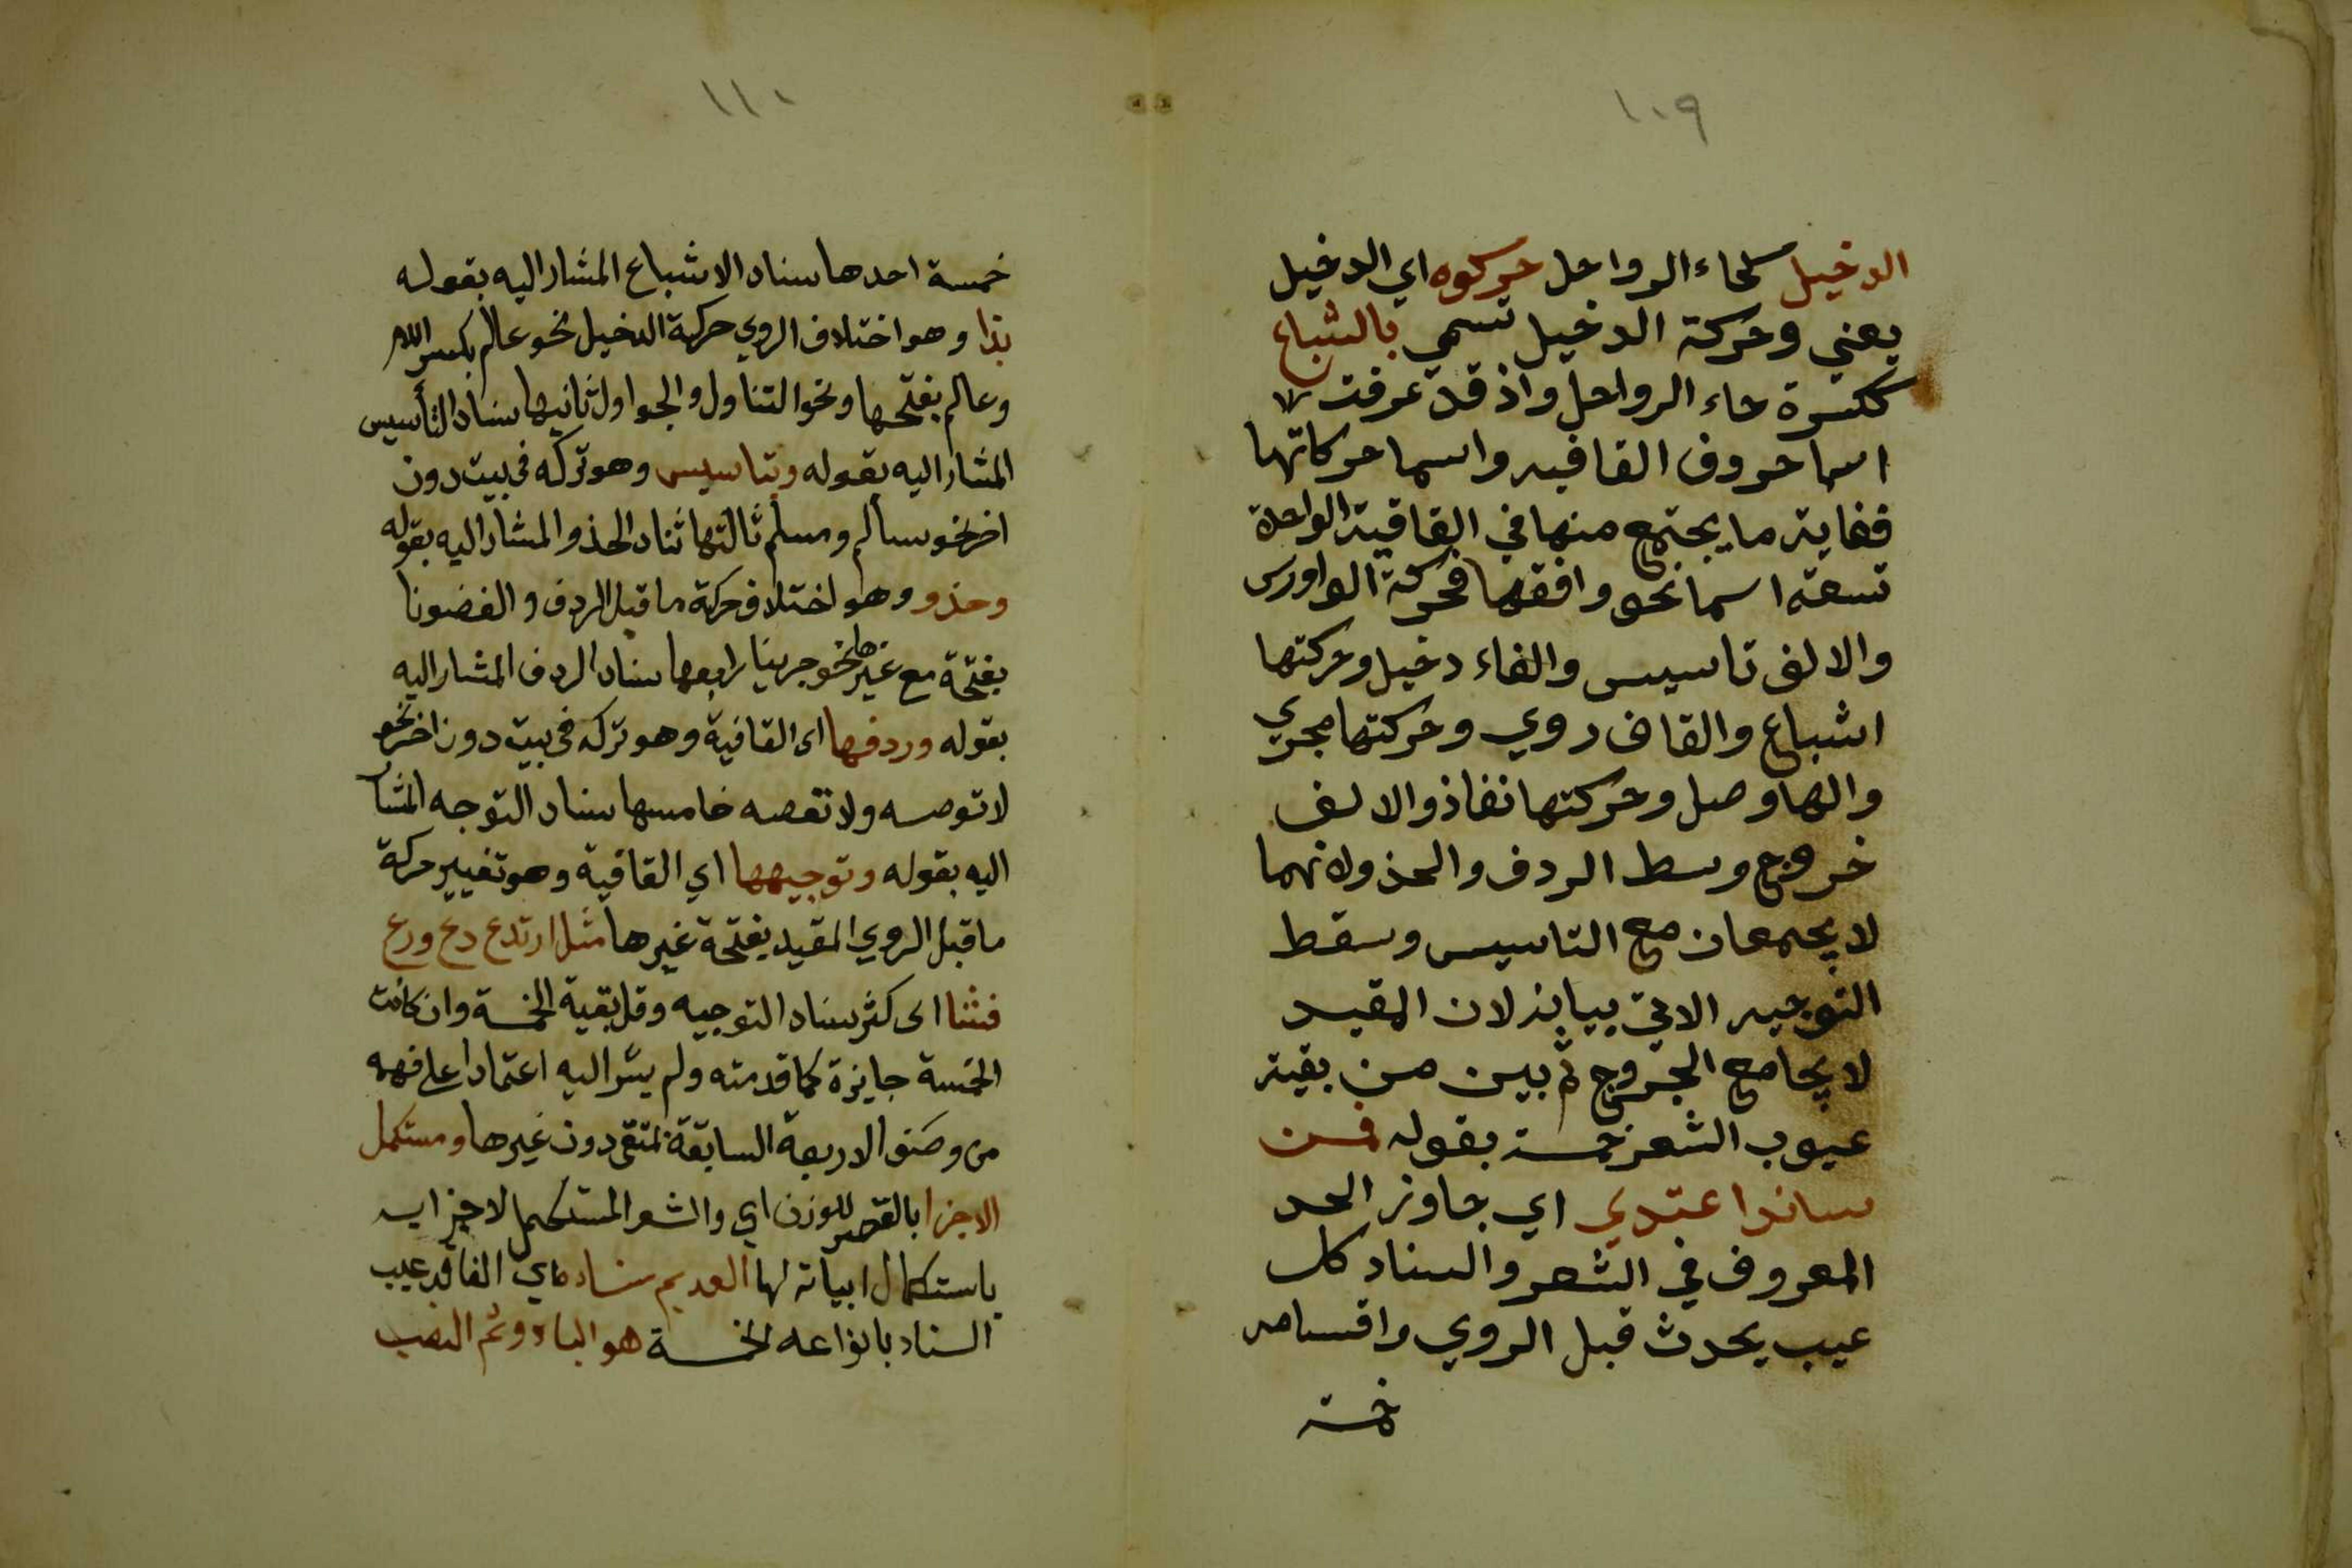 ١٠٩
الدخيل كحاء الرواحل حركوه اي الدخيل
يعني وحركة الدخيل تسمي بالشباع
ككسرة حاء الرواحل واذ قد عرفت
اسما حروف القافيه واسما حركاتها
فغاية ما يجتمع منها في القافية الواحدة
تسعة اسما نحو وافقها فحركة الواورس
والالف تاسيس والفاء دخيل وحركتها
اشباع والقاف روي وحركتها مجري
والها وصل وحركتها نفاذ والالف
خروج وسط الردف والحذو لانهما
لا يجمعان مع التاسيس وسقط
التوجيه الاتي بيانه لان المقيد
لا يجامع الخروج ثم بين من بقية
عيوب الشعر خمسة بقوله فمن
ساندا عتدي اي جاوز الحد
المعروف في الشعر والسناد كل
عيب يحدث قبل الروي واقسامه
خمسة
١١٠
خمسة احدها سناد الاشباع المشار اليه بقوله
بذا وهو اختلاف الروي حركة الدخيل نحو عالم بكسر اللام
وعالم بفتحها ونحو التناول والجداول ثانيها سناد التأسيس
المشار اليه بقوله وبتاسيس وهو تركه في بيت دون
اخر نحو سالم ومسلم ثالثها سناد الحذو المشار اليه بقوله
وحذو وهو اختلاف حركة ما قبل الردف و الغضونا
بفتحة مع غيرها نحو جرينا رابعها سناد الردف المشار اليه
بقوله وردفها اي القافية وهو تركه في بيت دون اخر نحو
لا توصه ولا تعصه خامسها سناد التوجه المشا
اليه بقوله وتوجيهها اي القافية وهو تغيير حركة
ما قبل الروي المقيد بفتحة غيرها مثل ارتدع دع ورع
فشا اي كثر سناد التوجيه وقل بقية الخمسة وان كانت
الخمسة جايزة كما قدمته ولم يشر اليه اعتمادا على فهمه
من وصف الاربعة السابقة لمتقي دون غيرها ومستكمل
الاجزا بالقصر للوزن اي والشعر المستكمل لاجزايه
باستكمال ابياته لها العديم سناده اي الفاقد عيب
السناد بانواعه الخمسة هو الباء وثم النصب